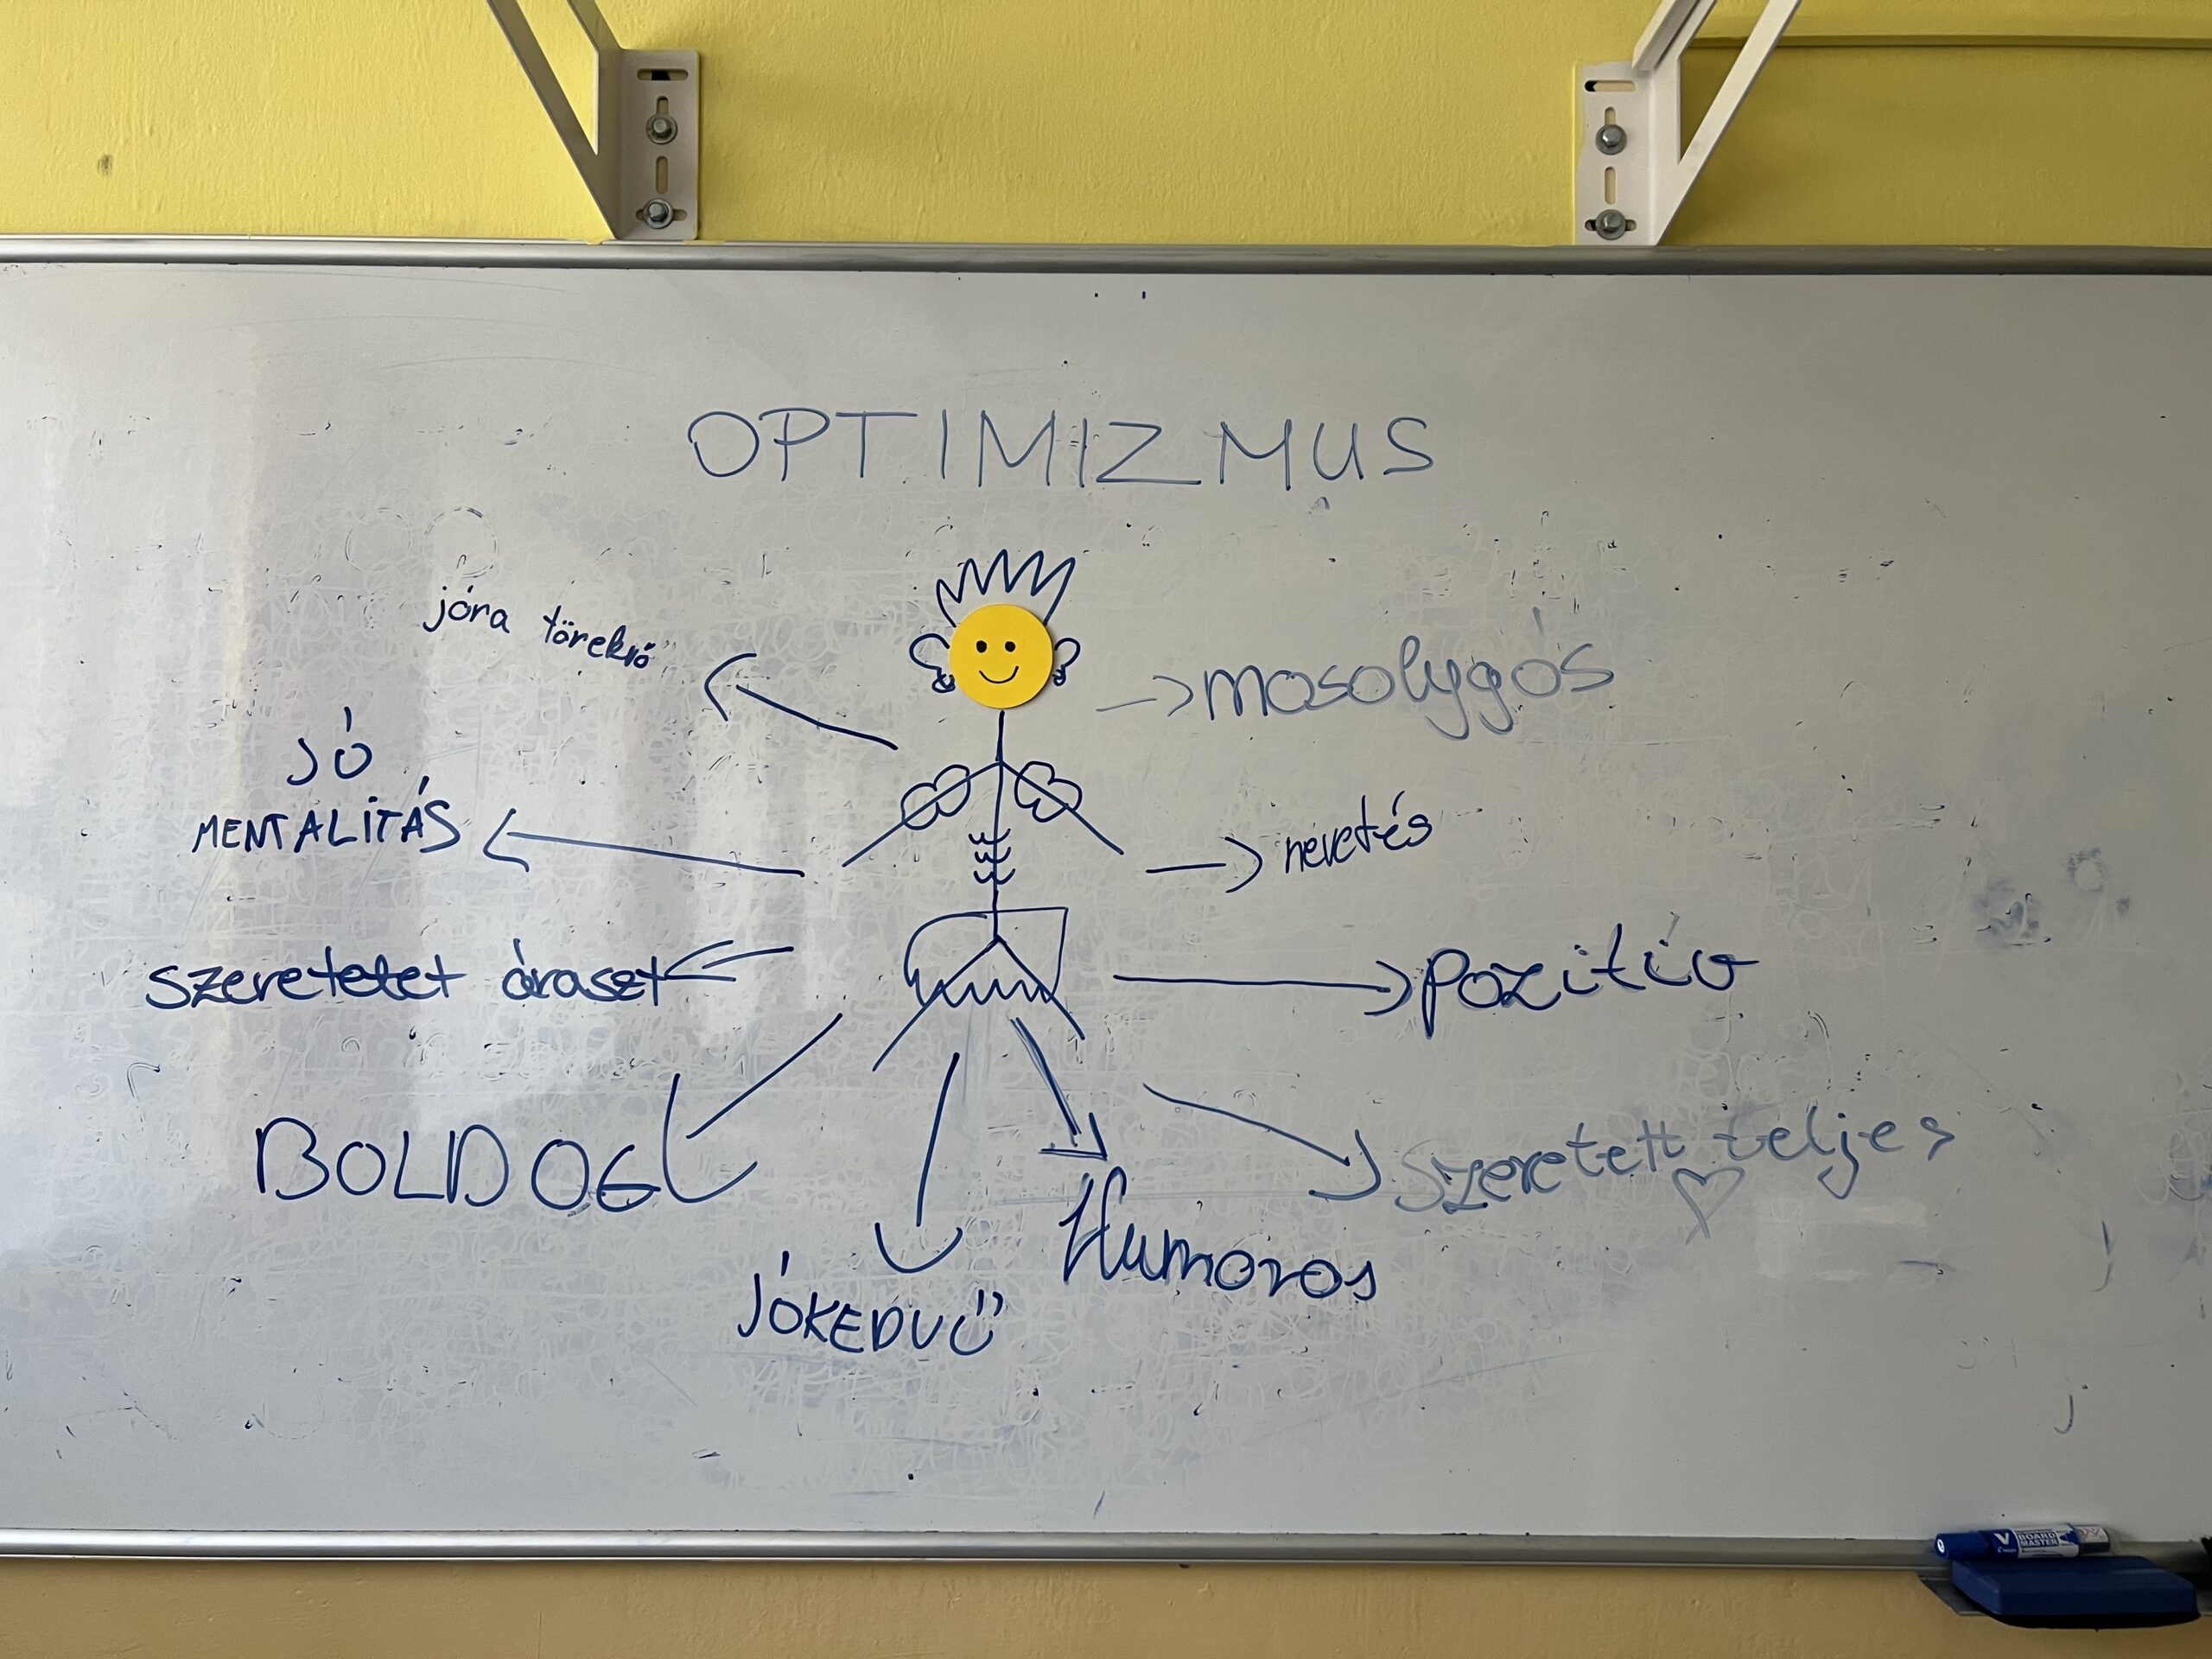 OPTIMIZMUS
jóra törekvő
mosolygós
JÓ
MENTALITÁS
nevetés
szeretetet áraszt
pozitív
BOLDOG
Szeretett teljes
Humoros
JÓKEDVŰ
V BOARD MASTER